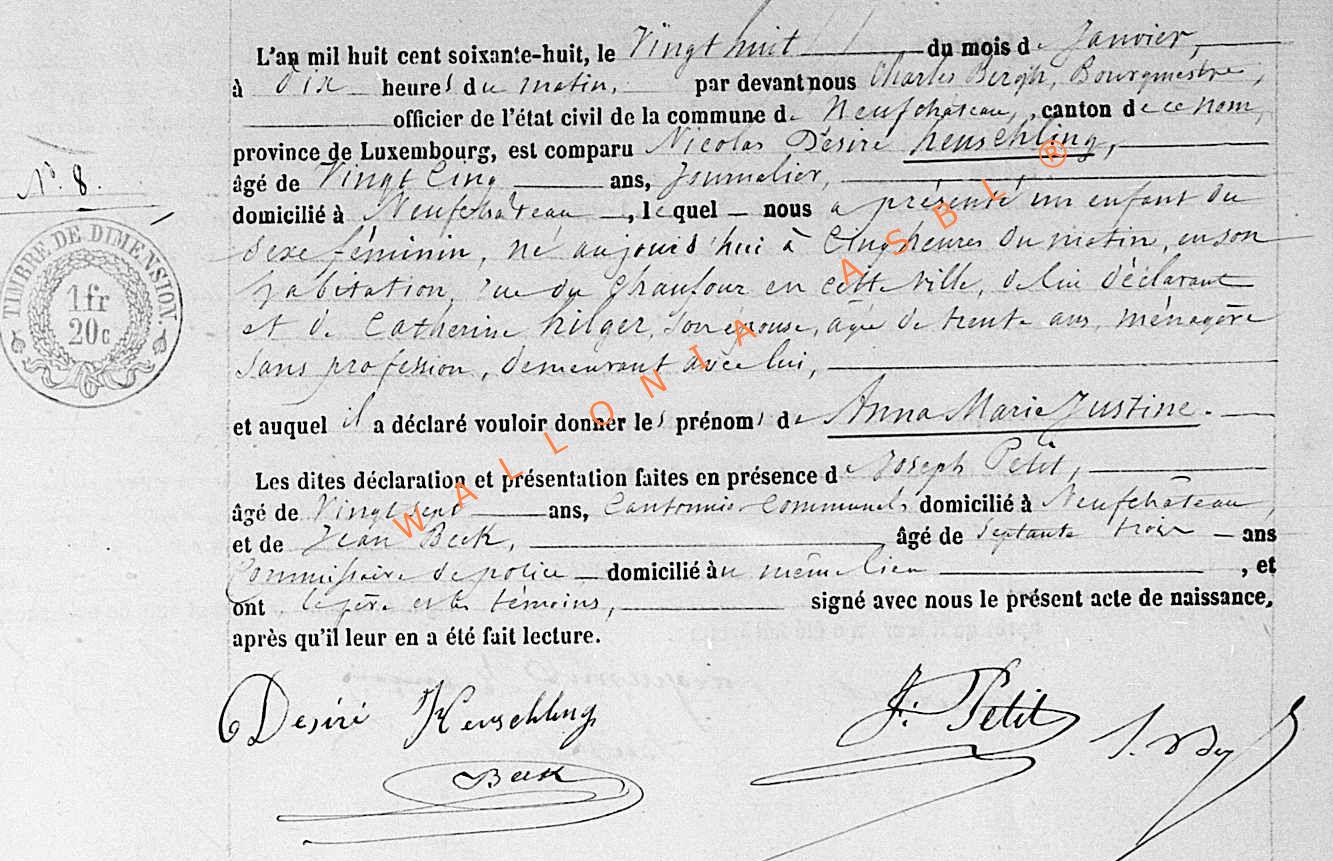 L'an mil huit cent soixante-huit, le Vingt huit du mois de Janvier,
à Dix heures du matin, par devant nous Charles Bergh, Bourgmestre,
officier de l'état civil de la commune de Neufchâteau, canton de ce nom,
province de Luxembourg, est comparu Nicolas Désiré Keuschling,
N° 8.
âgé de Vingt Cinq ans, Journalier,
domicilié à Neufchâteau, lequel nous a présenté un enfant du
sexe féminin, né aujourd'hui à Cinq heures du matin, en son
habitation, rue du Chaufour en cette ville, de lui déclarant
et de Catherine hilger, son épouse, agée de trente ans, ménagère
sans profession, demeurant avec lui,
et auquel il a déclaré vouloir donner les prénoms de Anna Marie Justine.
Les dites déclaration et présentation faites en présence de Joseph Petit,
âgé de Vingt ans, Cantonnier Communal, domicilié à Neufchâteau,
et de Jean Beck, âgé de septante trois ans
Commissaire de police domicilié au même lieu, et
ont le père et les témoins, signé avec nous le présent acte de naissance,
après qu'il leur en a été fait lecture.
TIMBRE DE DIMENSION
1fr
20c
Désiré Keuschling
J. Petit
Beck
WALLONIA ASBL ®